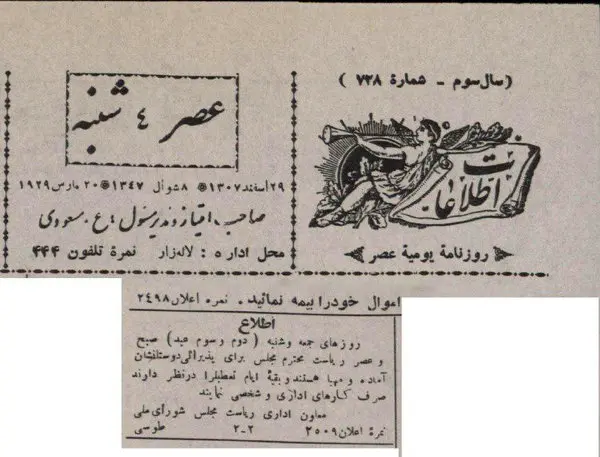 (سال سوم - شمارهٔ ۷۳۸)
اطلاعات
روزنامهٔ یومیهٔ عصر
عصر ۴ شنبه
۲۹ اسفند ۱۳۰۷ ۸ شوال ۱۳۴۷ ۲۰ مارس ۱۹۲۹
صاحب امتیاز و مدیر مسئول: ع. مسعودی
محل اداره: لاله‌زار نمرهٔ تلفون ۴۴۴
اموال خود را بیمه نمائید. نمره اعلان ۲۴۹۸
اطلاع
روزهای جمعه و شنبه (دوم و سوم عید) صبح
و عصر ریاست محترم مجلس برای پذیرائی دوستانشان
آماده و مهیا هستند و بقیهٔ ایام تعطیل را در نظر دارند
صرف کارهای اداری و شخصی نمایند
معاون اداری ریاست مجلس شورای ملی
نمرهٔ اعلان ۲۵۰۹ ۲-۲ طوسی